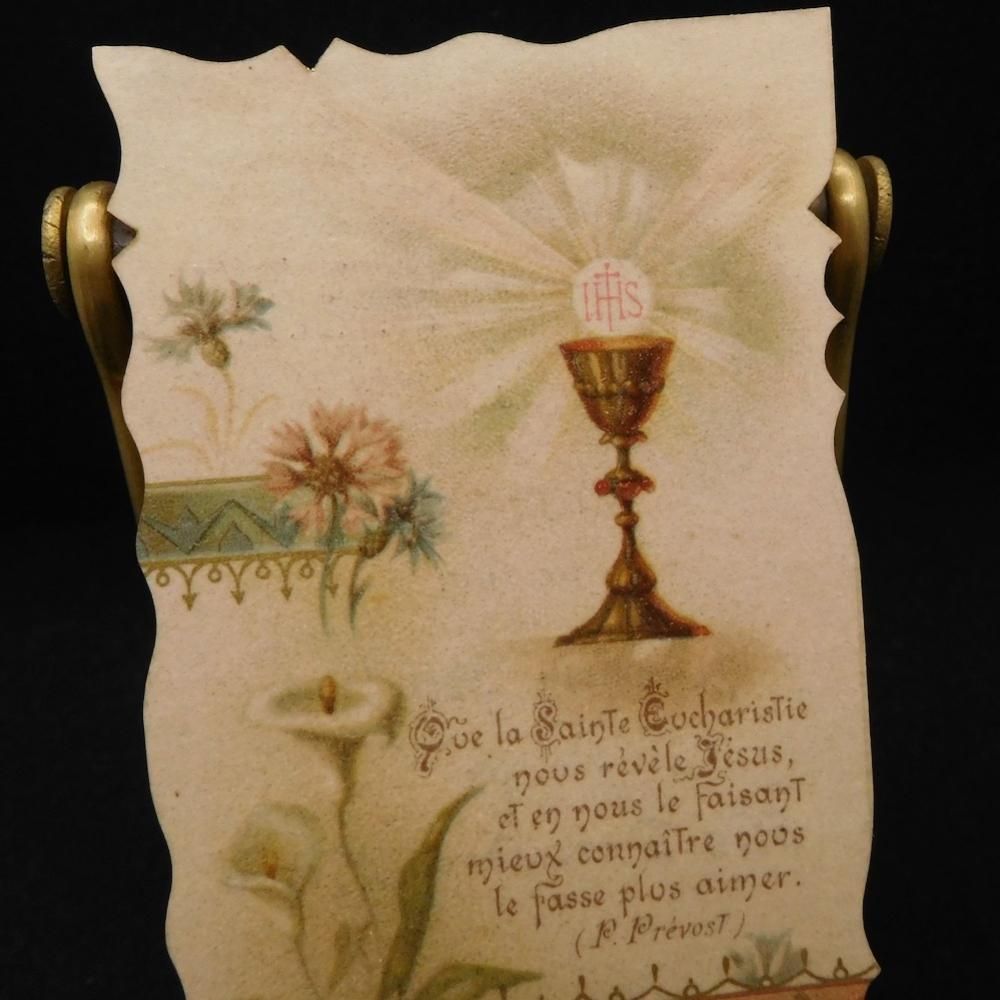 IHS
Que la Sainte Eucharistie
nous révèle Jésus,
et en nous le faisant
mieux connaître nous
le fasse plus aimer.
(P. Prévost)